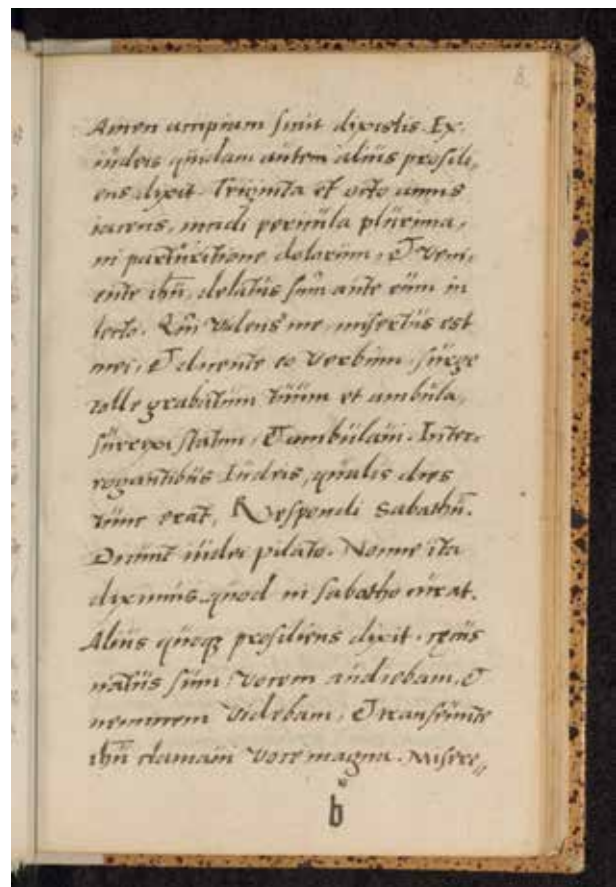 8
Amen accipiam sicut dixistis. Ex
iudeis quidam autem alius prosili,,
ens dixit. Triginta et octo annis
iacens, inedi pericula plurima,
in parturitione dolorum, & veni,,
ente ihu, delatus sum ante eum in
lecto. Qui videns me, misertus est
mei, & dicente eo verbum surge
tolle grabatum tuum et ambula,
surrexi statim, & ambulavi. Inter,,
rogantibus Iudeis, qualis dies
tunc erat, Respondi Sabathu.
Dicunt iudei pilato. Nonne ita
diximus, quod in sabatho curat.
Alius quoqz prosiliens dixit. cecus
natus sum, vocem audiebam, &
neminem videbam, & transeunte
ihu clamavi voce magna. Misere,,
b